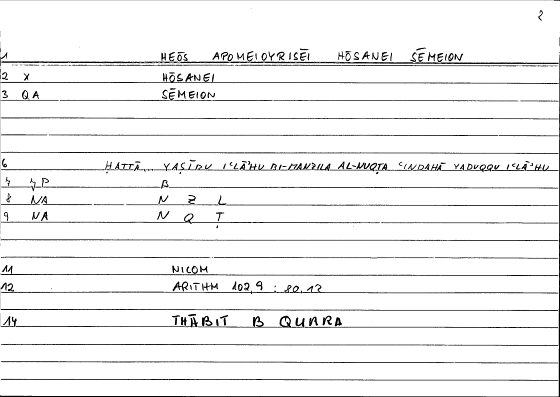 2
1 HEŌS APOMEIOYRISĒI HŌSANEI SĒMEION
2 X HŌSANEI
3 QA SĒMEION
6 ḤATTĀ... YAṢĪRU IʿLĀʾHU BI-MANZILA AL-NUQṬA ʿINDAHĀ YADUQQU IʿLĀʾHU
B
8 NA N Z L
9 NA N Q Ṭ
11 NICOM
12 ARITHM 102,9 : 80,12
14 THĀBIT B QURRA